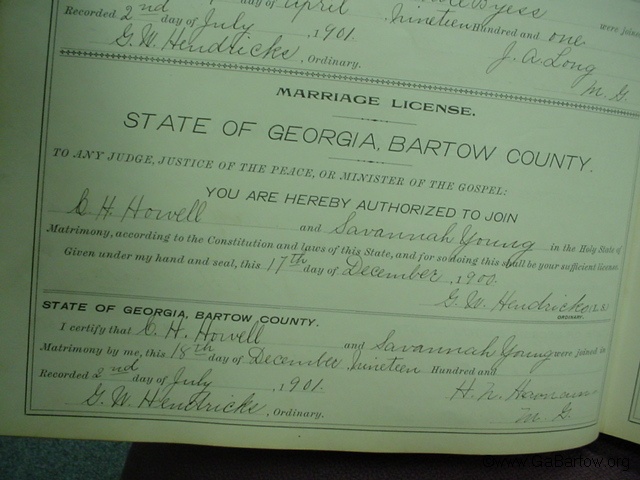 day of April
were joined
Recorded 2nd day of July, 1901. Nineteen Hundred and one
G. W. Hendricks, Ordinary. J. A. Long
M. G.
MARRIAGE LICENSE.
STATE OF GEORGIA, BARTOW COUNTY.
TO ANY JUDGE, JUSTICE OF THE PEACE, OR MINISTER OF THE GOSPEL:
YOU ARE HEREBY AUTHORIZED TO JOIN
C H Howell and Savannah Young in the Holy State of
Matrimony, according to the Constitution and laws of this State, and for so doing this shall be your sufficient license.
Given under my hand and seal, this 17th day of December, 1900.
G. W. Hendricks (L.S.)
ORDINARY.
STATE OF GEORGIA, BARTOW COUNTY.
I certify that C. H. Howell and Savannah Young were joined in
Matrimony by me, this 18th day of December Nineteen Hundred and
Recorded 2nd day of July, 1901 H. N.
G. W. Hendricks, Ordinary. M G.
©www.GaBartow.org